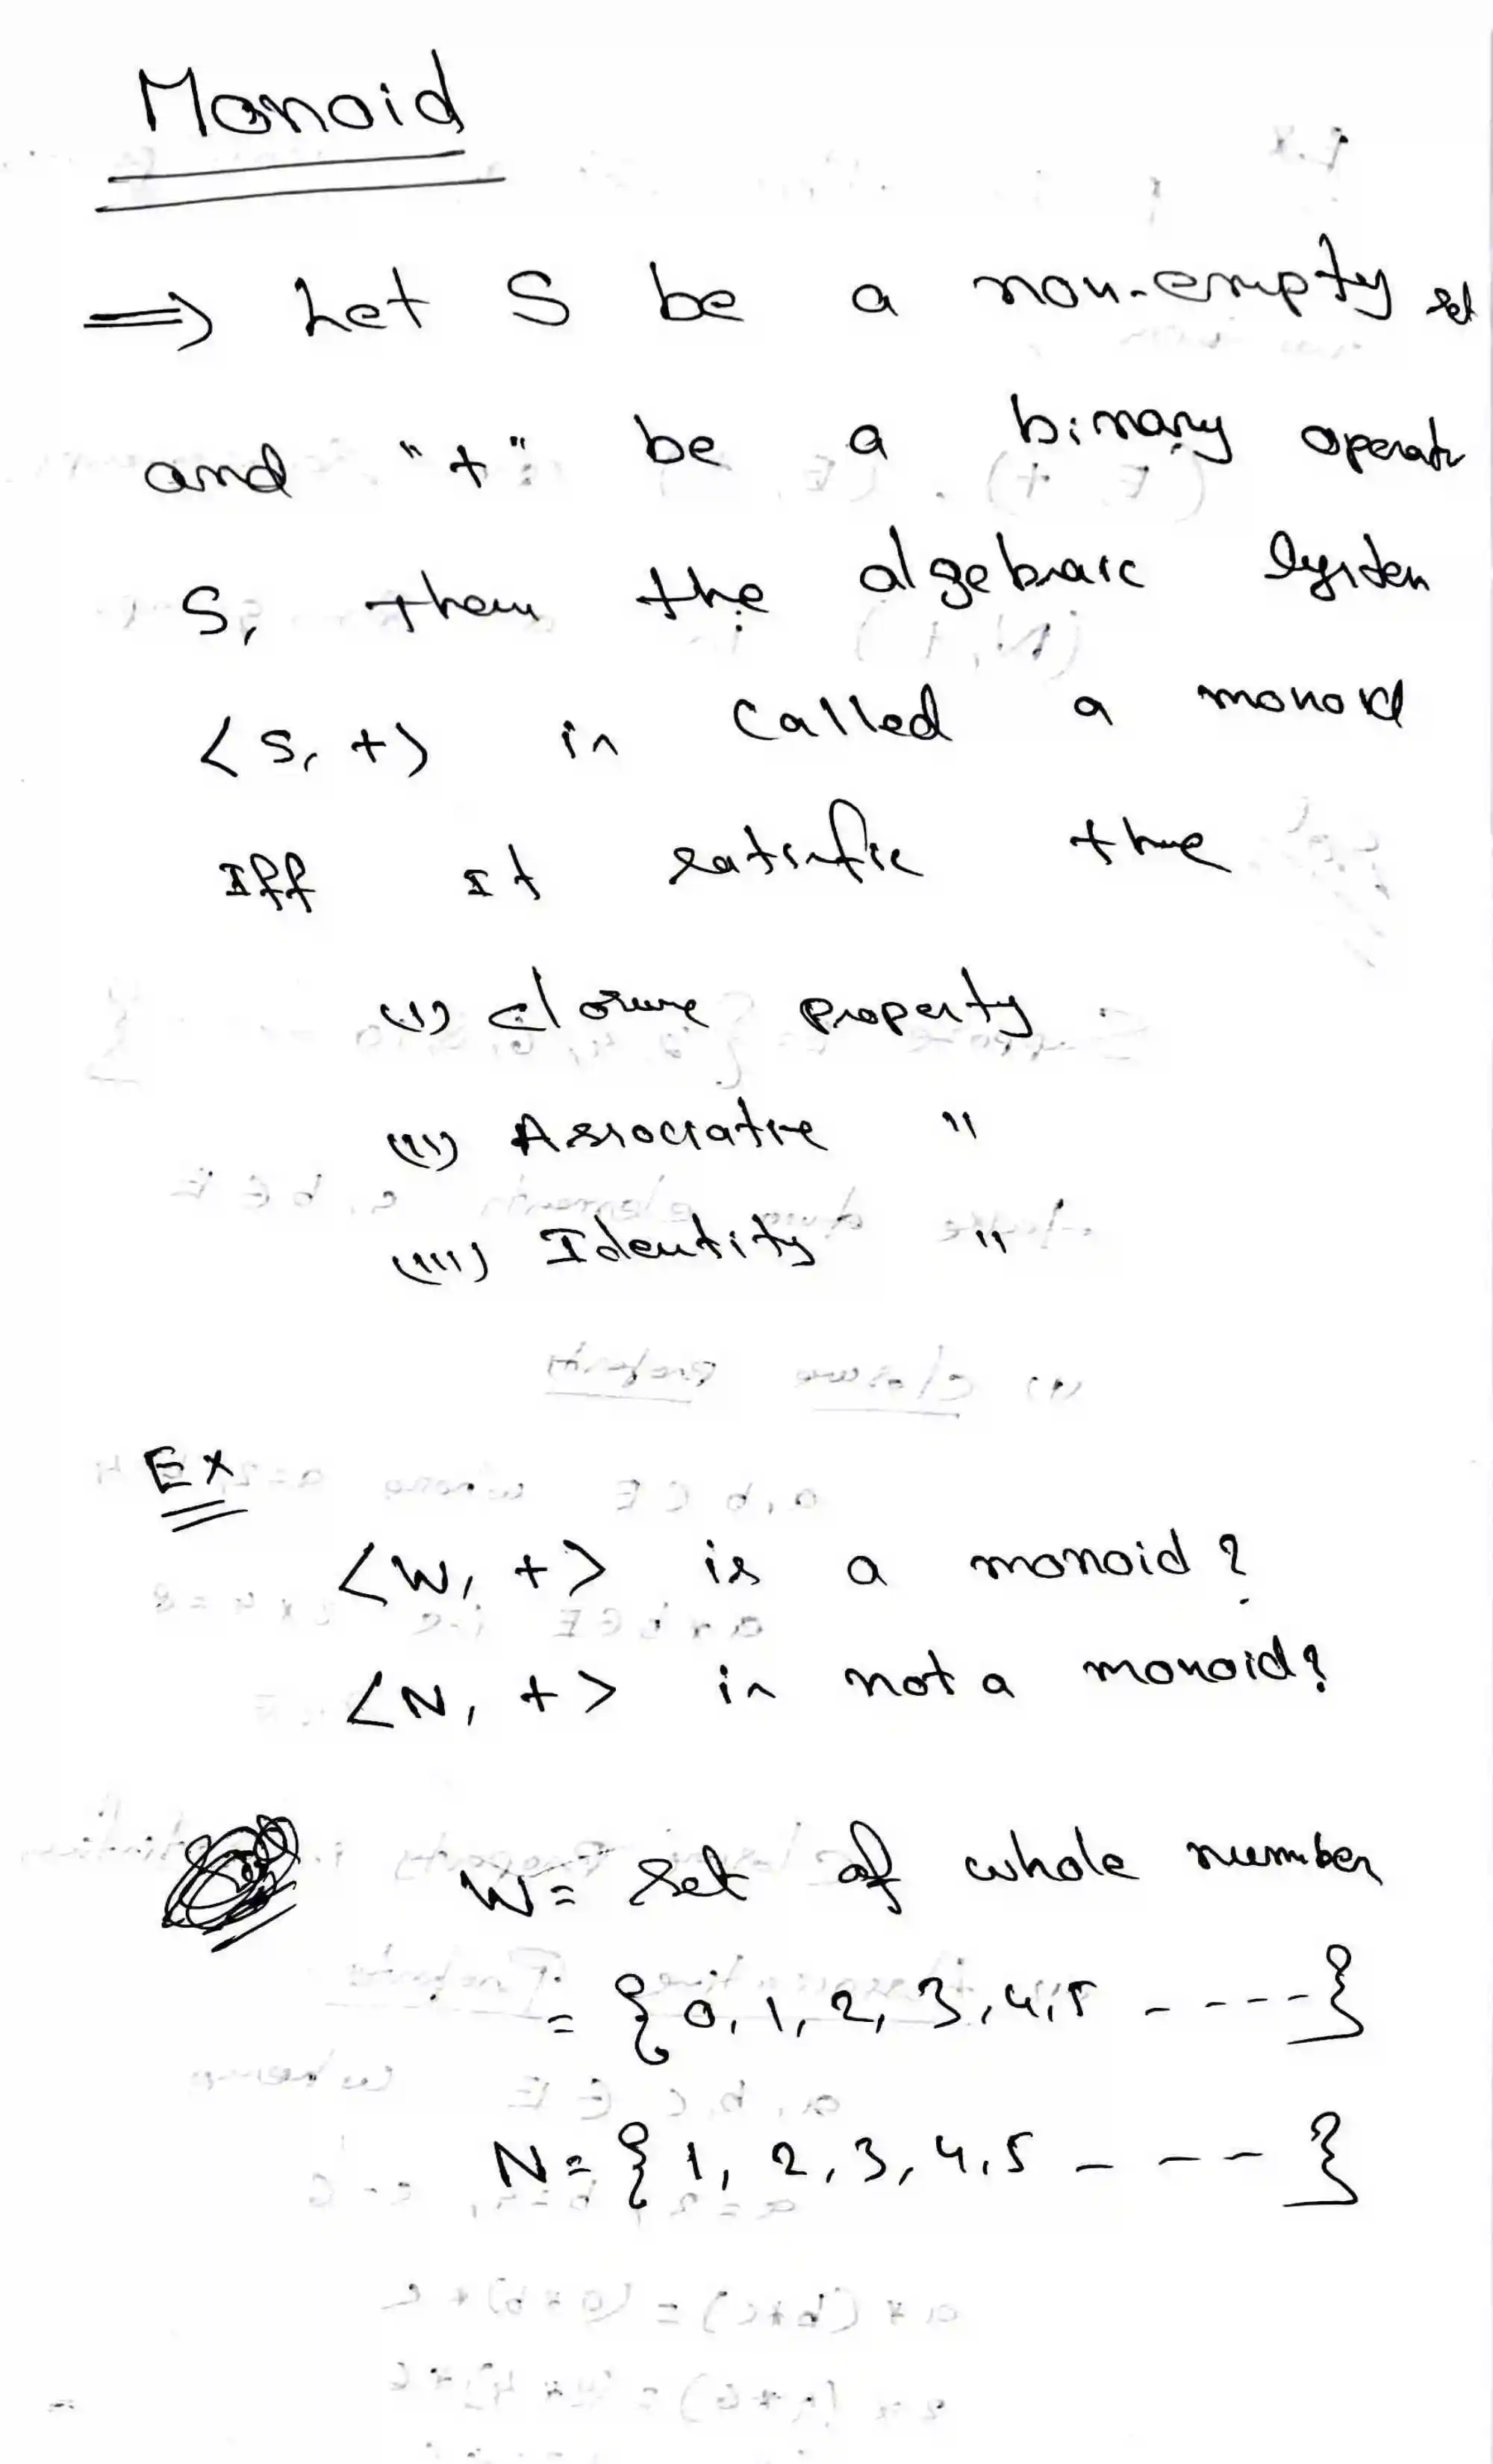 Monoid
=> Let S be a non-empty set
and "+" be a binary operat
S, then the algebraic System
<S, +> is called a monoid
Iff it satisfie the
(i) Closure property
(ii) Associative "
(iii) Identity "
Ex
<W, +> is a monoid?
<N, +> is not a monoid?
W = Set of whole number
= {0, 1, 2, 3, 4, 5 - - - - -}
N = {1, 2, 3, 4, 5 - - - - }